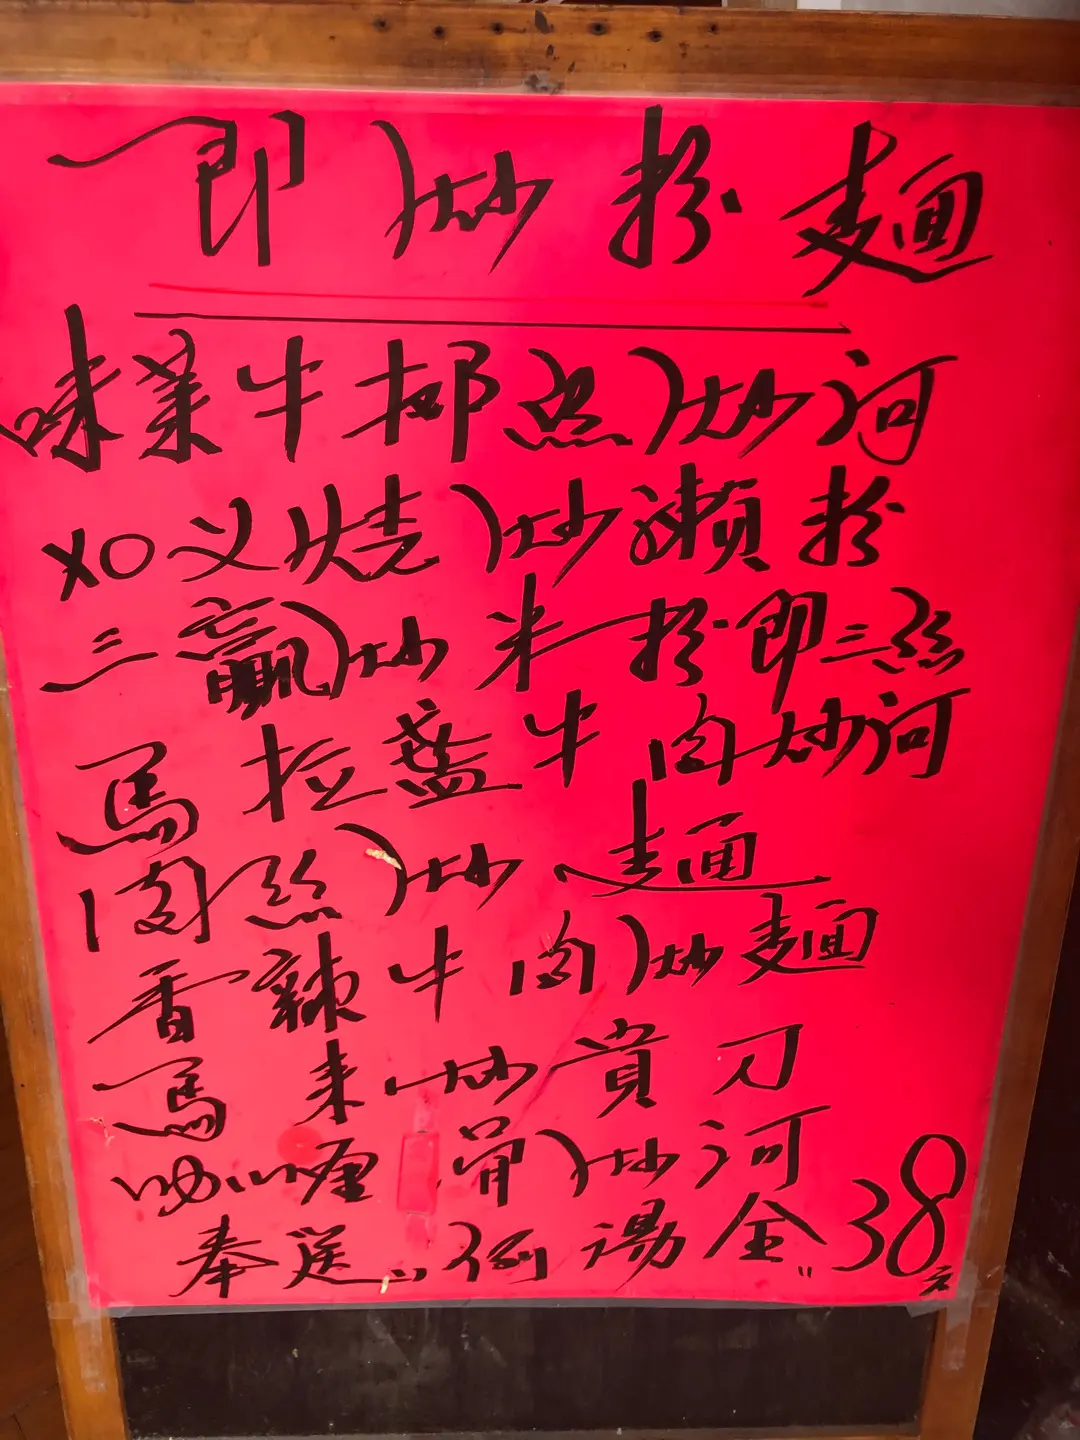 即炒粉麵
味菜牛柳炒河
XO叉燒炒瀨粉
三贏炒米粉即三絲
馬拉盞牛肉炒河
肉絲炒麵
香辣牛肉炒麵
馬来炒貴刀
咖喱骨炒河
奉送"例湯全" 38元